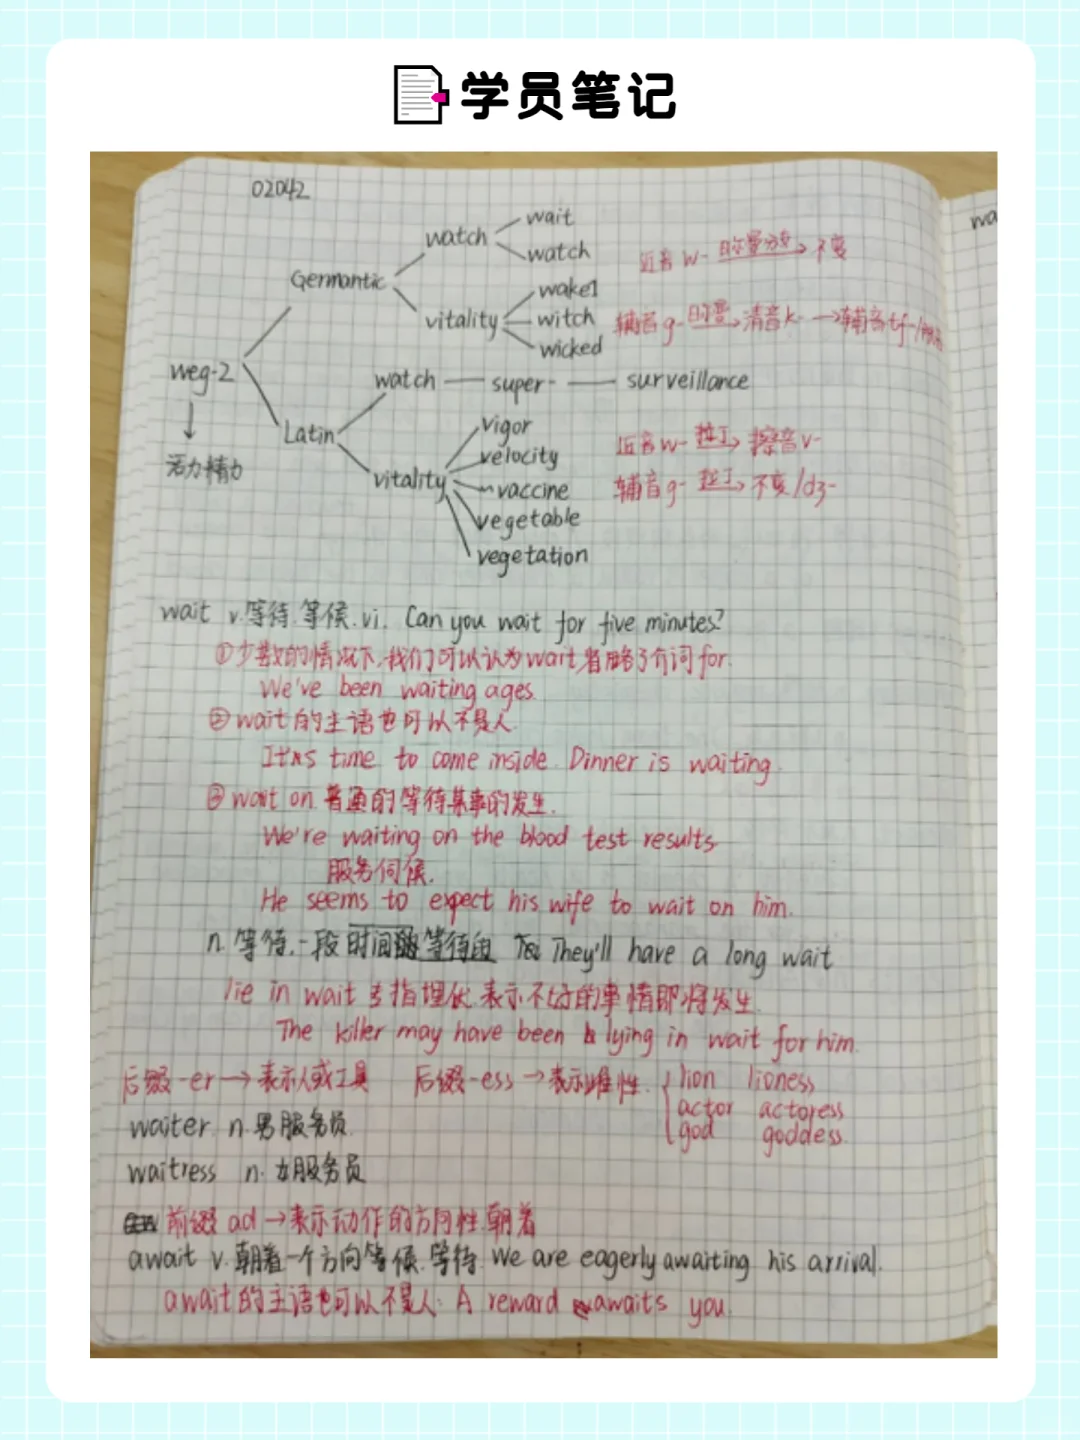 学员笔记
02042
wa
wait
watch
watch
近音 w- 日尔曼分支 不变
Germantic
wake1
vitality
witch
辅音 g- 日尔曼 清音 k- →辅音 tf-/
wicked
weg-2
watch — super- — surveillance
Latin
活力精力
vigor
velocity
近音 w- 拉丁 擦音 v-
vitality
vaccine
辅音 g- 拉丁 不变/dʒ-
vegetable
vegetation
wait v.等待.等候.vi. Can you wait for five minutes?
①少数的情况下,我们可以认为wait省略了介词for.
We've been waiting ages.
②wait的主语也可以不是人.
It's time to come inside. Dinner is waiting.
③wait on. 普通的等待某事的发生.
We're waiting on the blood test results.
服务伺候.
He seems to expect his wife to wait on him.
n.等待.一段时间等待 They'll have a long wait
lie in wait 专指埋伏.表示不好的事情即将发生.
The killer may have been lying in wait for him.
后缀-er→表示人或工具 后缀-ess→表示雌性. lion lioness
actor actoress
waiter. n.男服务员.
god goddess
waitress n.女服务员
前缀 ad→表示动作的方向性.朝着
await v.朝着一个方向等候.等待. We are eagerly awaiting his arrival.
await的主语也可以不是人. A reward awaits you.